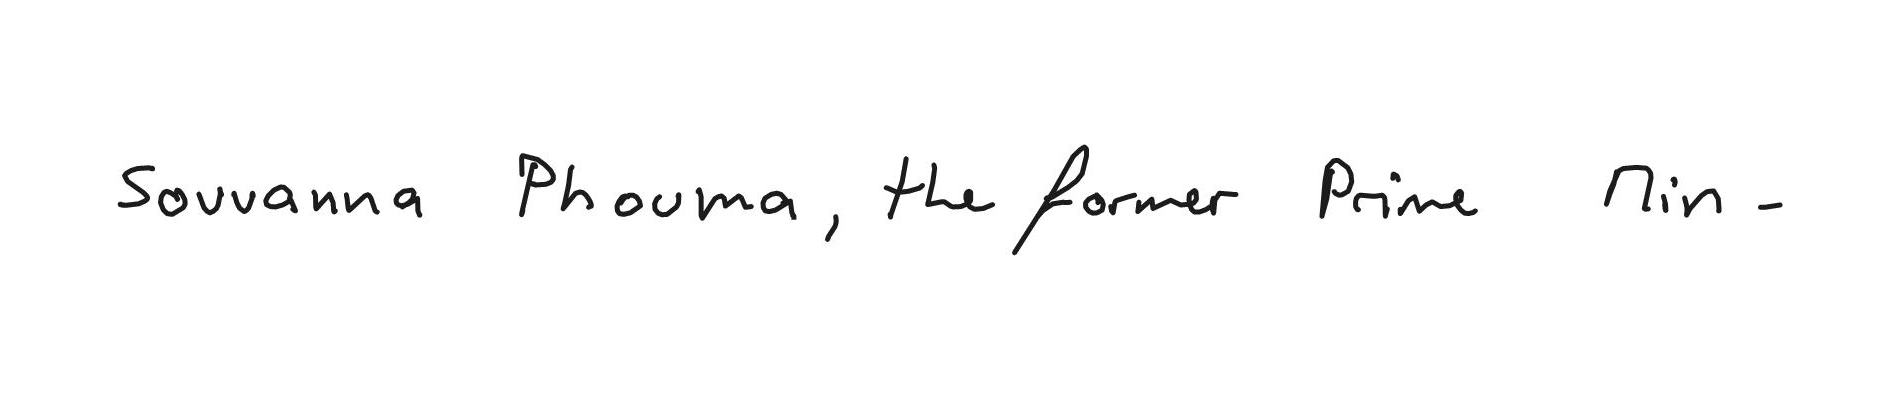 Souvanna Phouma, the former Prime Min-